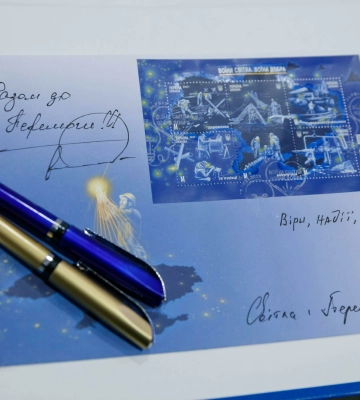 Разом до
Перемоги!!!
ВОЇНИ СВІТЛА. ВОЇНИ ДОБРА
Віри, надії,
Світла і Пере